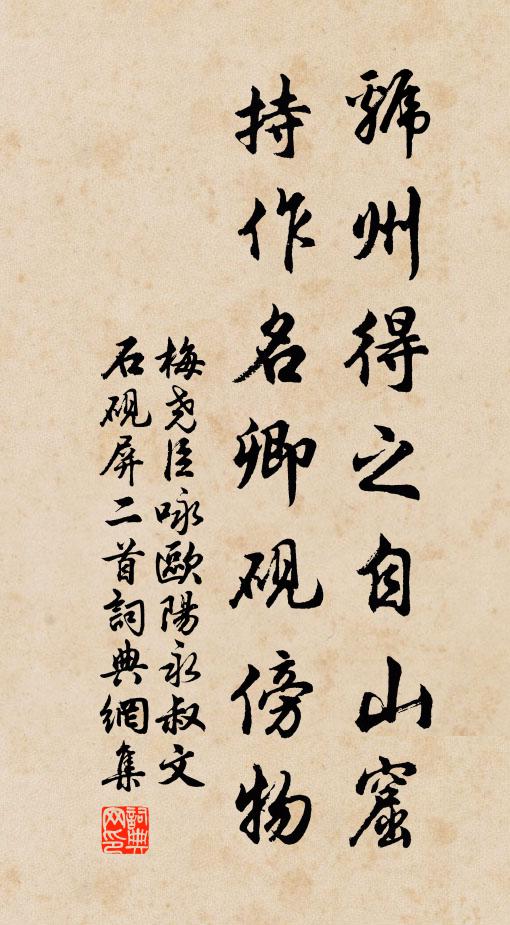 虢州得之自山窟
持作名卿硯傍物
梅堯臣咏歐陽永叔文
石硯屏二首詞典網集
詞典网印